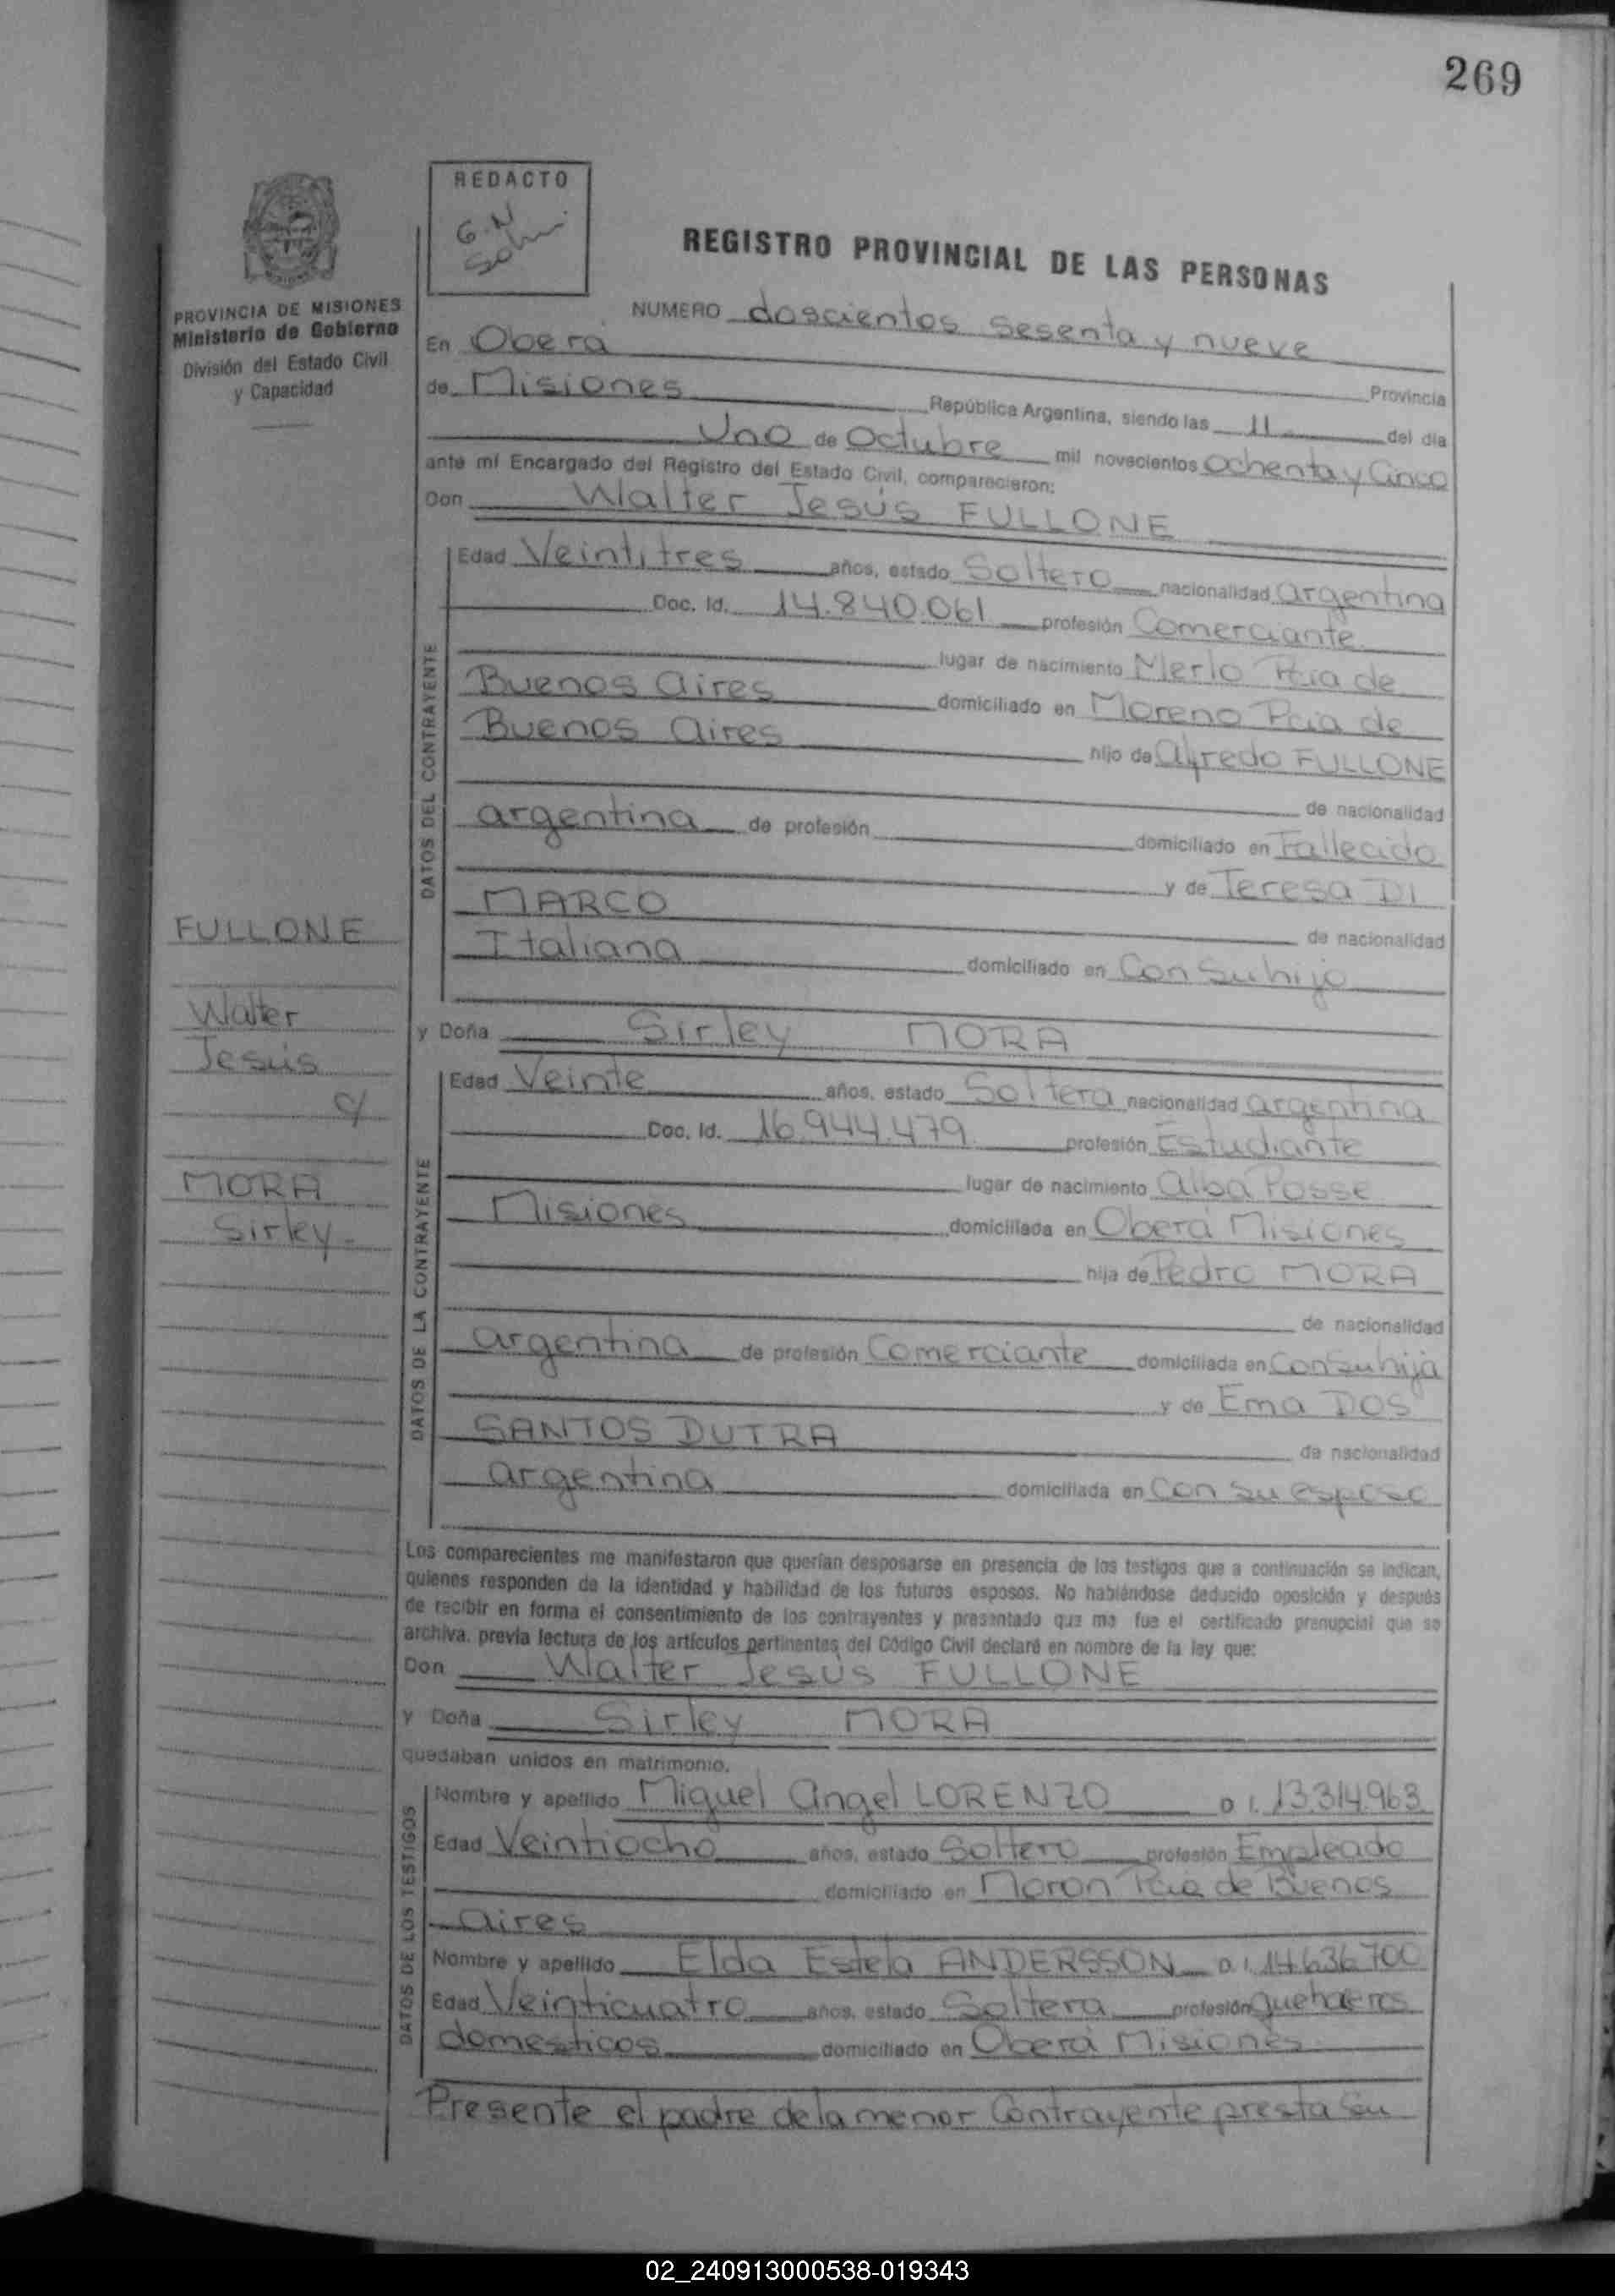 269
REDACTO
G.N
REGISTRO PROVINCIAL DE LAS PERSONAS
PROVINCIA DE MISIONES
Ministerio de Gobierno
División del Estado Civil
y Capacidad
NUMERO doscientos sesenta y nueve
En Oberá Provincia
de Misiones República Argentina, siendo las 11 del día
Uno de Octubre mil novecientos Ochenta y Cinco
ante mí Encargado del Registro del Estado Civil, comparecieron:
Don Walter Jesús FULLONE
DATOS DEL CONTRAYENTE
Edad Veintitres años, estado Soltero nacionalidad argentina
Doc. Id. 14.840.061 profesión Comerciante
lugar de nacimiento Merlo Pcia de
Buenos Aires domiciliado en Moreno Pcia de
Buenos Aires hijo de Alfredo FULLONE
de nacionalidad
argentina de profesión domiciliado en Fallecido
y de Teresa DI
MARCO de nacionalidad
Italiana domiciliado en Con Su hijo
FULLONE
Walter
Jesús
c/
MORA
Sirley-
y Doña Sirley MORA
DATOS DE LA CONTRAYENTE
Edad Veinte años, estado Soltera nacionalidad argentina
Doc. Id. 16.944.479 profesión Estudiante
lugar de nacimiento Alba Posse
Misiones domiciliada en Oberá Misiones
hija de Pedro MORA
de nacionalidad
argentina de profesión Comerciante domiciliada en Con su hija
y de Ema DOS
SANTOS DUTRA de nacionalidad
argentina domiciliada en Con su esposo
Los comparecientes me manifestaron que querían desposarse en presencia de los testigos que a continuación se indican,
quienes responden de la identidad y habilidad de los futuros esposos. No habiéndose deducido oposición y después
de recibir en forma el consentimiento de los contrayentes y presentado que me fue el certificado prenupcial que se
archiva, previa lectura de los artículos pertinentes del Código Civil declaré en nombre de la ley que:
Don Walter Jesús FULLONE
y Doña Sirley MORA
quedaban unidos en matrimonio.
DATOS DE LOS TESTIGOS
Nombre y apellido Miguel Angel LORENZO D I. 13.314.963
Edad Veintiocho años, estado Soltero profesión Empleado
domiciliado en Moron Pcia de Buenos
Aires
Nombre y apellido Elda Estela ANDERSSON D.I. 14.636.700
Edad Veinticuatro años, estado Soltera profesión quehaceres
domesticos domiciliado en Oberá Misiones
Presente el padre de la menor Contrayente presta Su
02_240913000538-019343